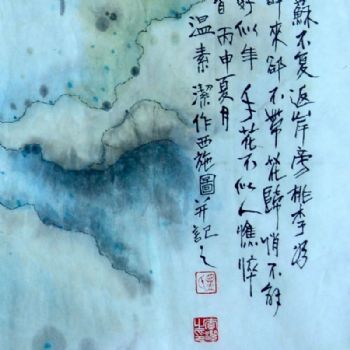 蘇不复返岸旁桃李為
來卻不帶花歸悄不解
似年年花不似人憔悴
丙申夏月
温素潔作西施圖并記之